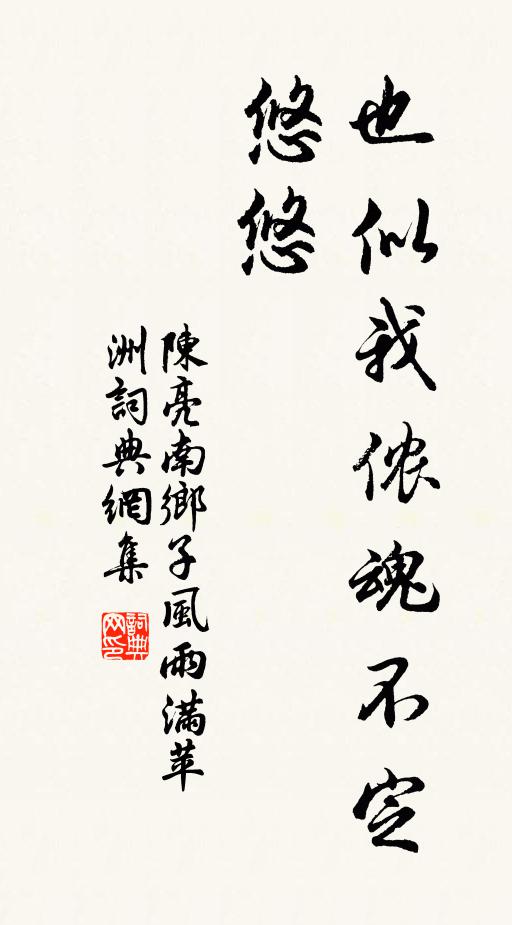 也似我侬魂不定
悠悠
陳亮南鄉子風雨滿苹
洲詞典網集
詞典
网印